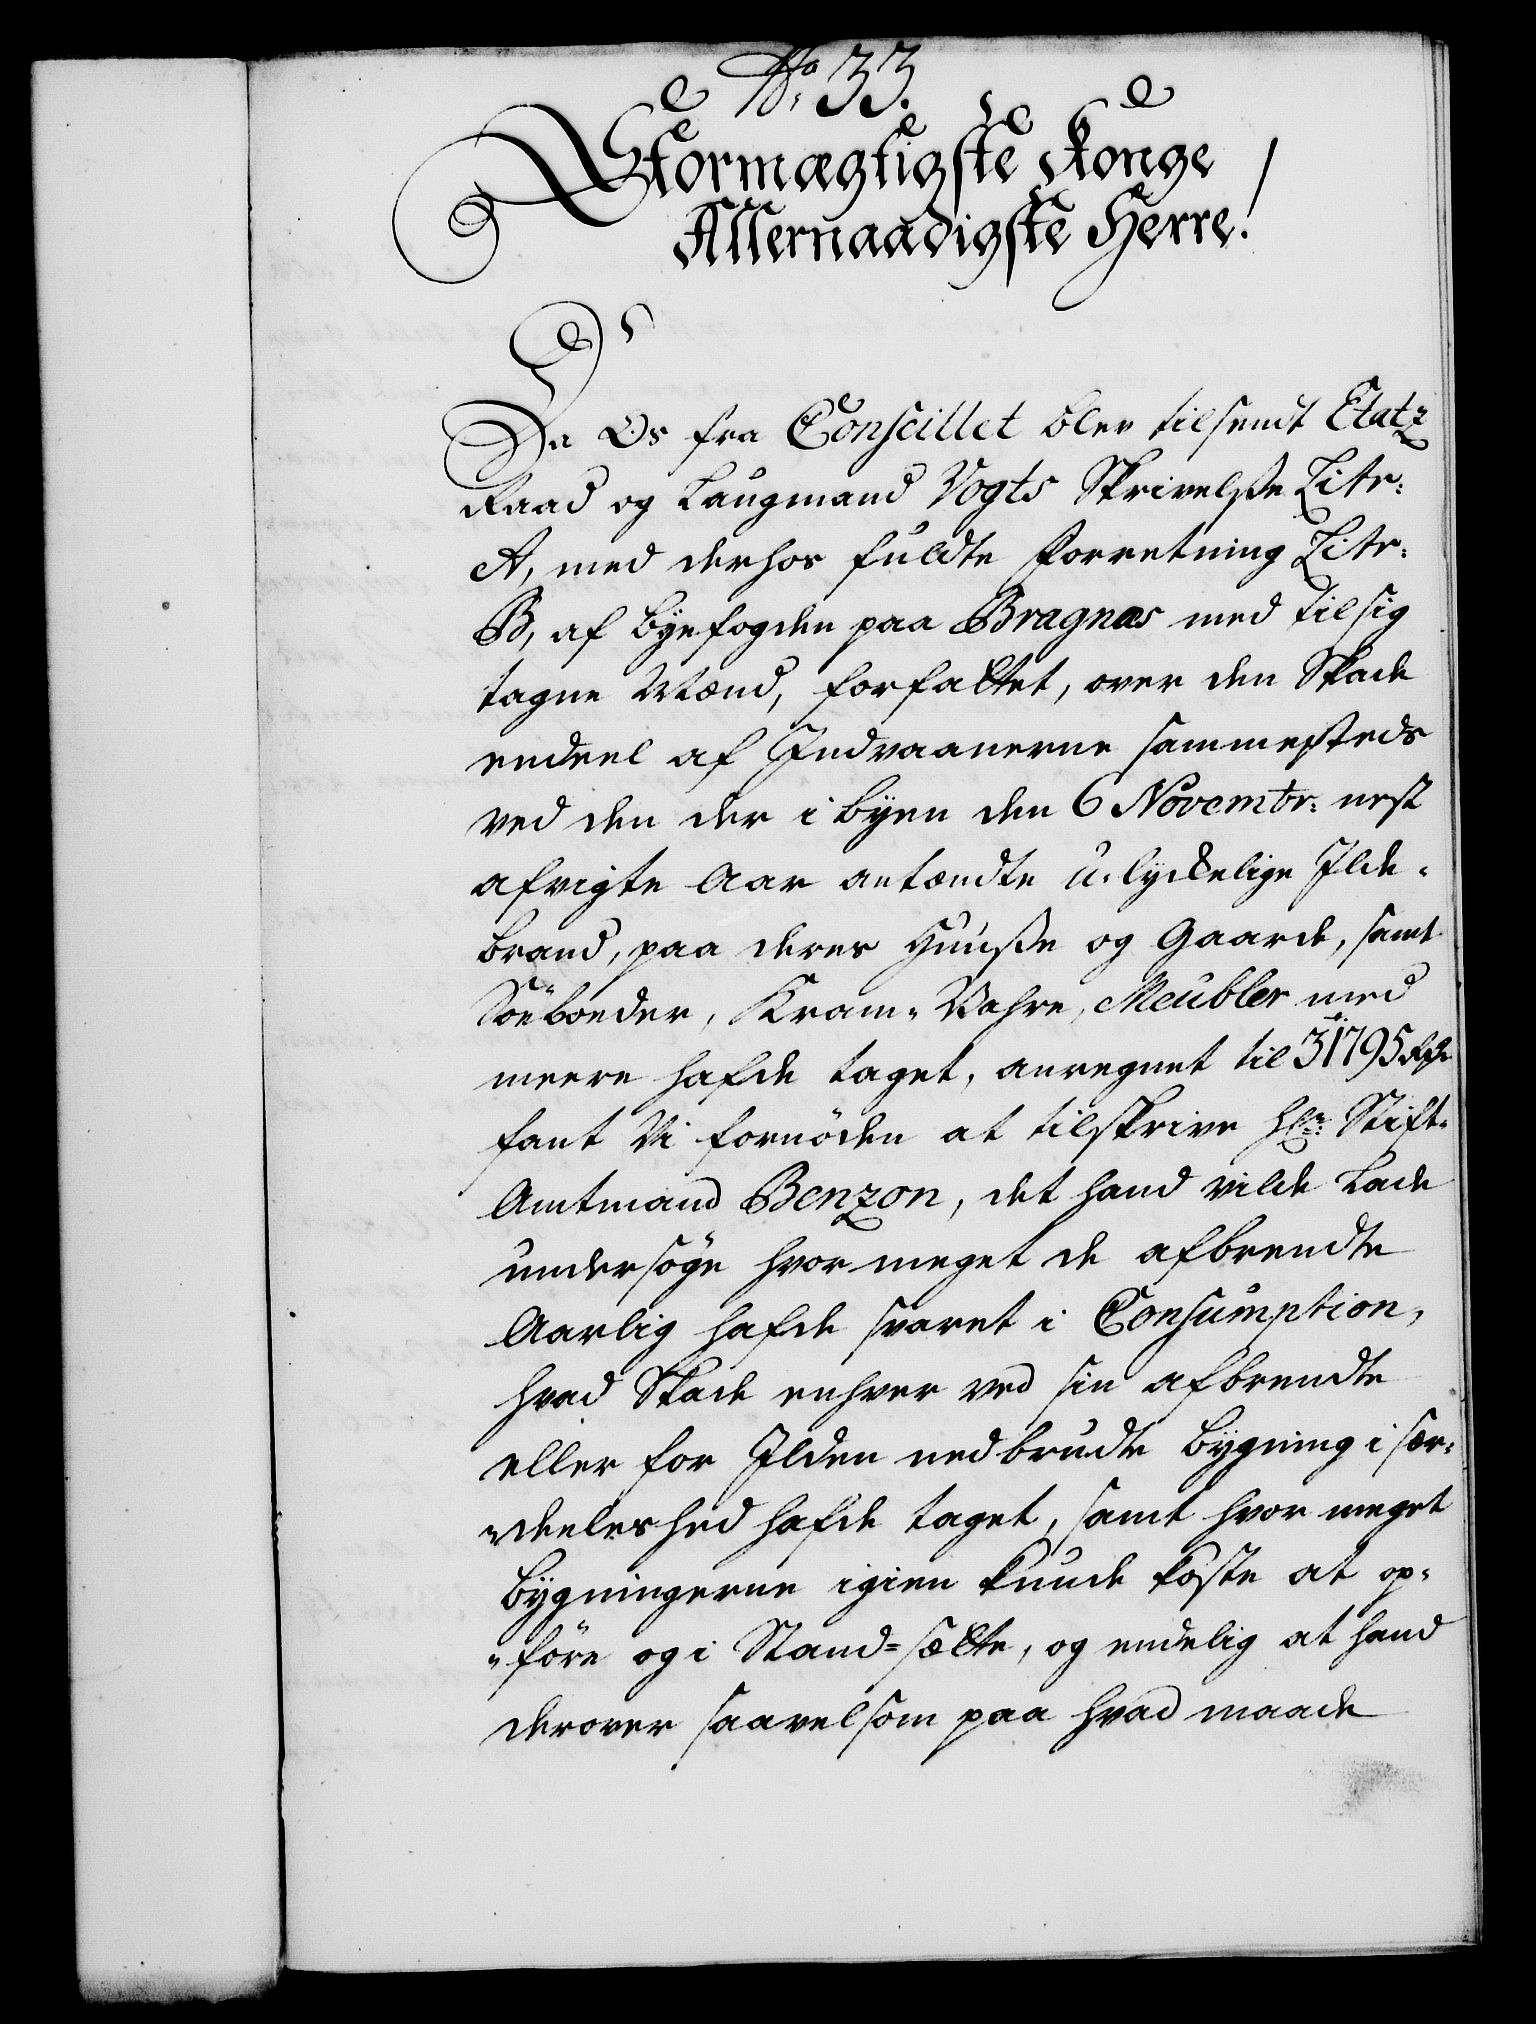 No. 33.
Stormægtigste Konge
Allernaadigste Herre!
Da Os fra Conseillet blev tilsendt Etatz
Raad og Laugmand Vogts Skrivelsse Litr:
A, med derhos fuldte Forretning Litr:
B, af byefogden paa Bragnæs med tilsig
tagne Mænd, forfattet, over den Skade
endeel af Indvaanerne sammesteds
ved den der i byen den 6 Novembr: nest
afvigte Aar antændte u-lyckelige Ilde-
brand, paa deres Huusse og Gaarde, samt
Söeboeder, Kram-Vahre, Meubler med
meere hafde taget, anregnet til 31795 Rdr.
fant Vi fornöden at tilskrive Hr. Stift-
Amtmand Benzon, det hand vilde Lade
undersöge hvor meget de afbrendte
Aarlig hafde svaret i Consumption,
hvad Skade enhver ved sin afbrendte
eller for Ilden nedbrudte bygning i sær-
-deeleshed hafde taget, samt hvor meget
bygningerne igien kunde koste at op-
-före og i Stand=sætte, og endelig at hand
derover saavelsom paa hvad maade